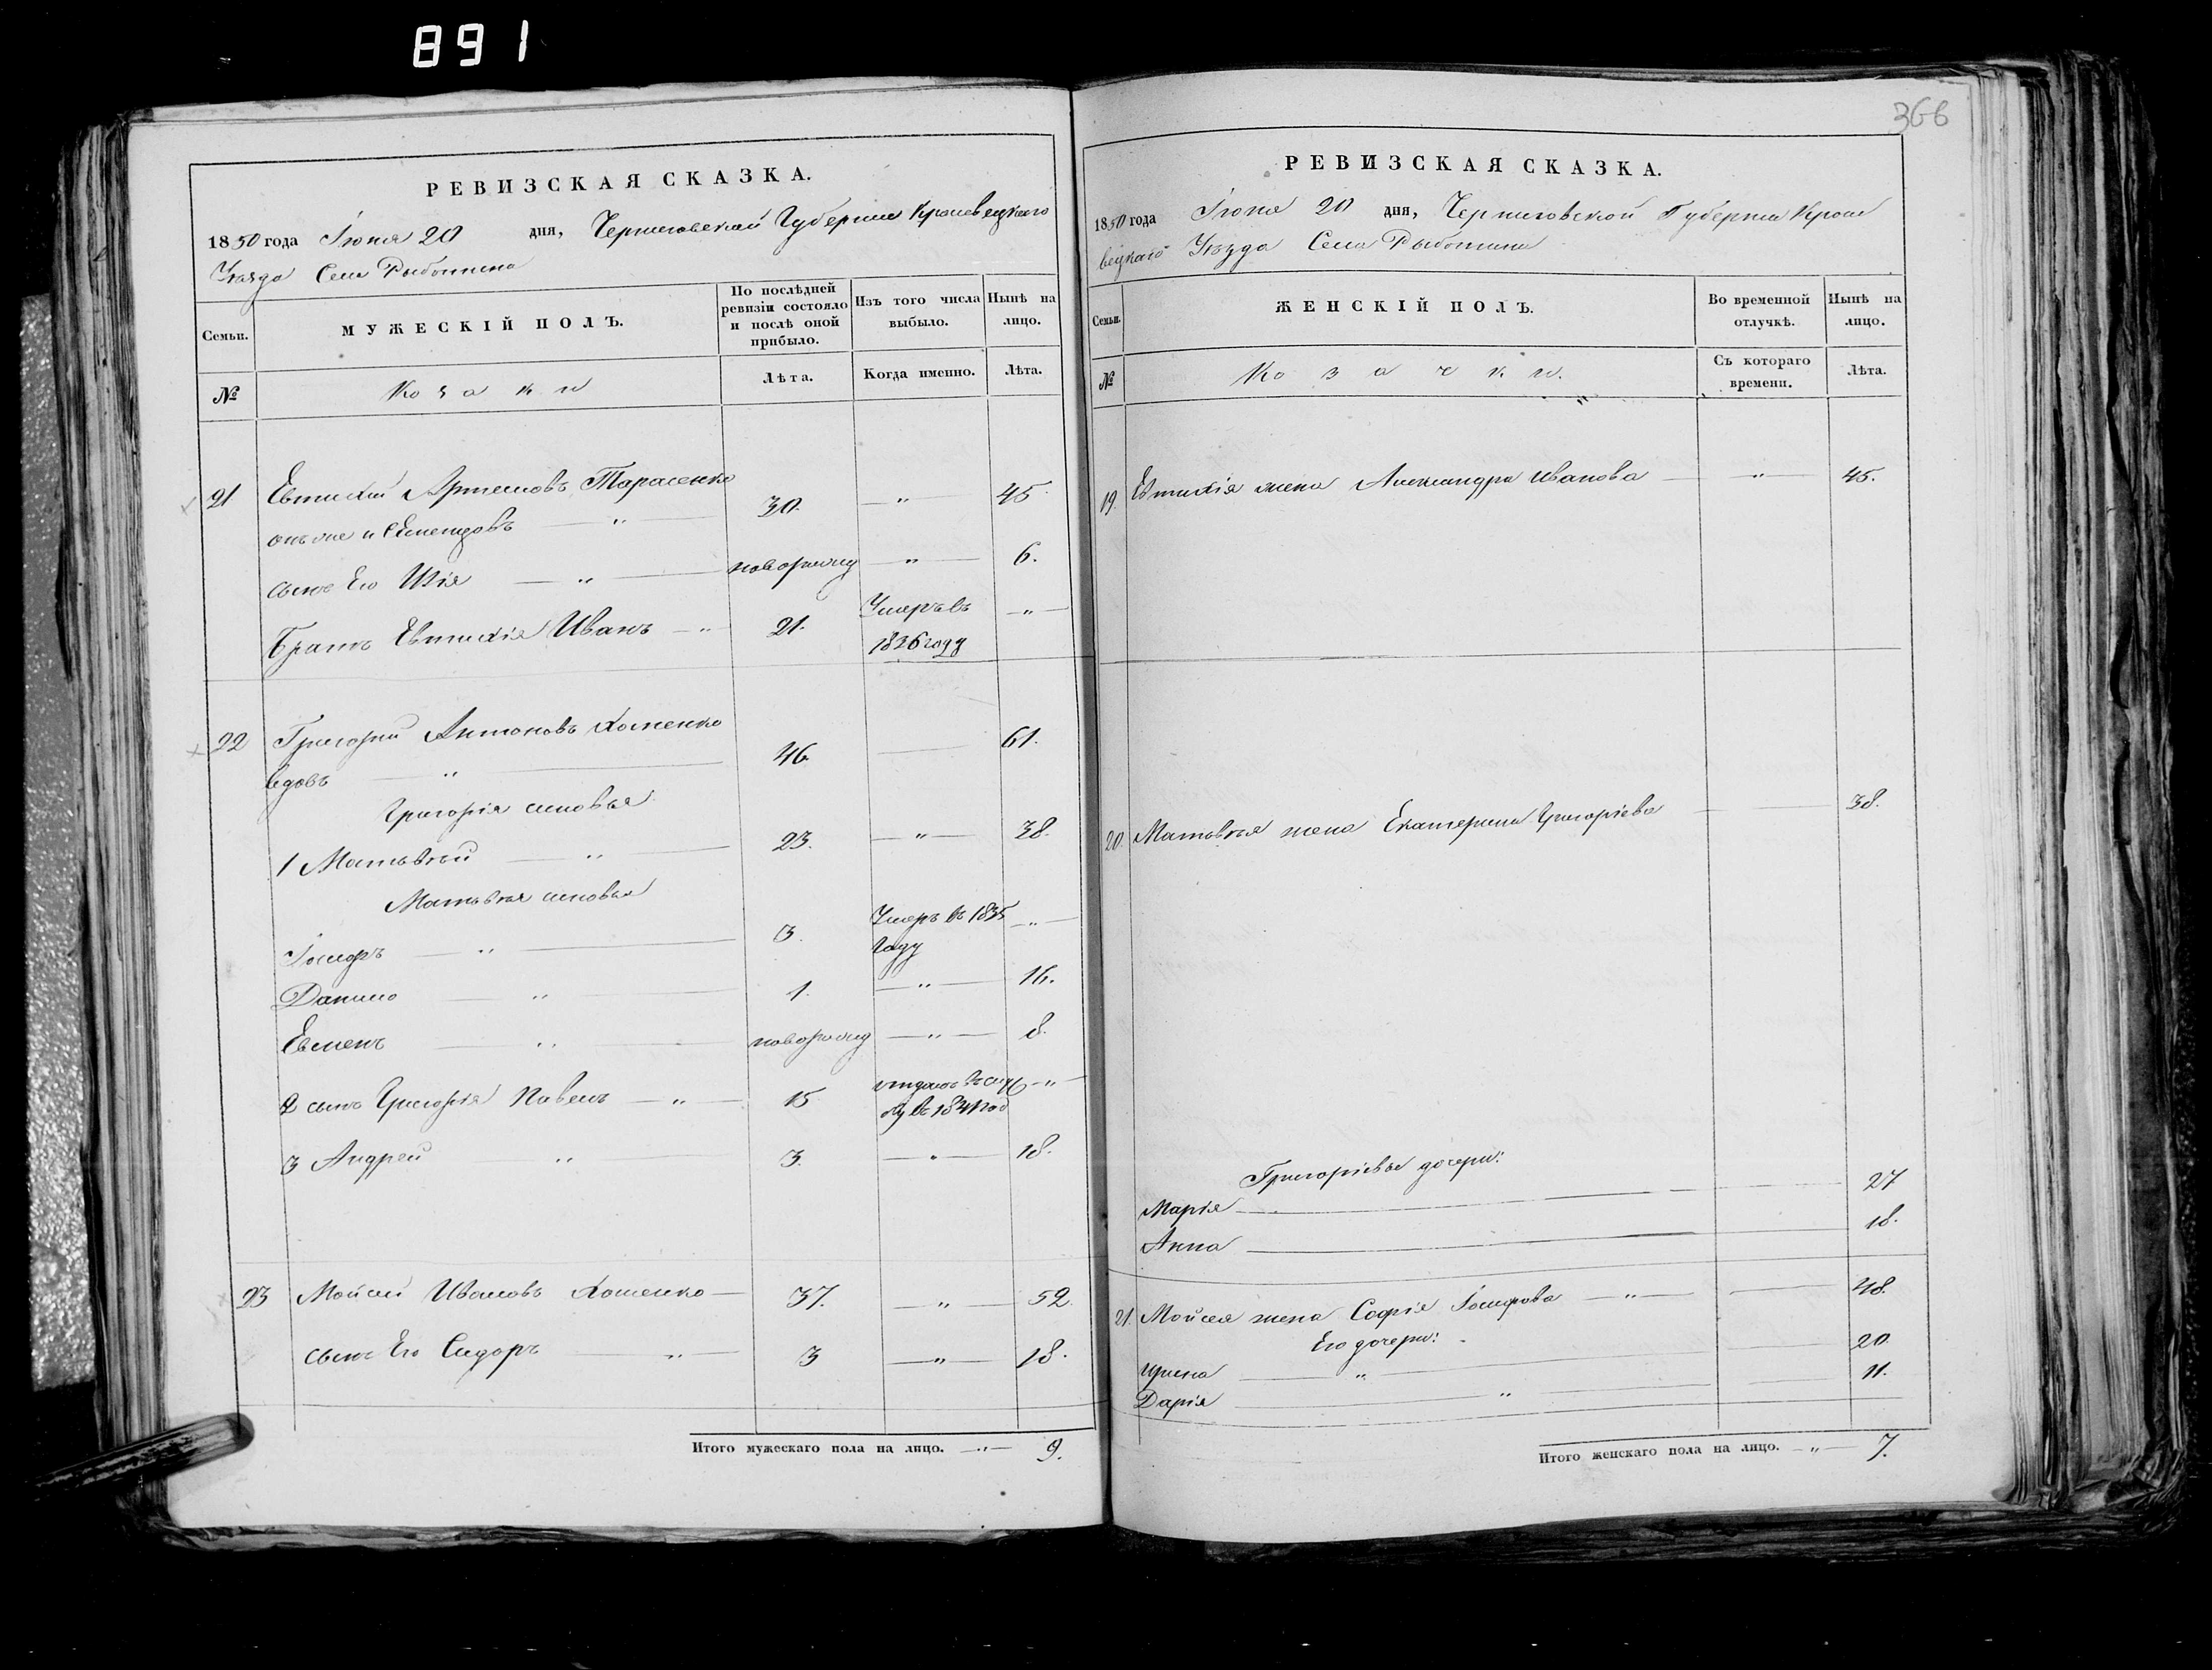 891
РЕВИЗСКАЯ СКАЗКА.
1850 года Іюня 20 дня, Черниговской Губерніи Кролевецкаго
Уѣзда Села Рыботина
Семьи.
МУЖЕСКІЙ ПОЛЪ.
По послѣдней ревизіи состояло и послѣ оной прибыло.
Изъ того числа выбыло.
Нынѣ на лицо.
№
Козаки
Лѣта.
Когда именно.
Лѣта.
21 Евтихій Артемовъ Тарасенко
онъ же и 30. — " — 45
сынъ Его Илія — " — новорожд — " — 6.
Братъ Евтихія Иванъ — " — 21. Умеръ въ — " —
1836 году
22 Григорій Антоновъ Хоменко
вдовъ — " — 46 — 61.
Григорія сыновья
1 Матьвѣй — " — 23. — " — 38.
Матьвѣя сыновья
Іосифъ — " — 3. Умеръ въ 1835 — " —
году
Данило — " — 1. — " — 16.
Евменъ — " — новорожд — " — 8.
2 сынъ Григорія Павелъ — " — 15 — " —
въ 1841 год
3 Андрей — " — 3. — " — 18.
23 Мойсей Ивановъ Хоменко — 37. — " — 52.
сынъ Его Сидоръ — " — 3 — " — 18.
Итого мужескаго пола на лицо. — " — 9.
366
РЕВИЗСКАЯ СКАЗКА.
1850 года Іюня 20 дня, Черниговской Губерніи Кроле
вецкаго Уѣзда Села Рыботина
Семьи.
ЖЕНСКІЙ ПОЛЪ.
Во временной отлучкѣ.
Нынѣ на лицо.
№
Козачки.
Съ котораго времени.
Лѣта.
19. Евтихія жена Александра Иванова — " — 45.
20. Матьвѣя жена Екатерина Григоріева — 38.
Григоріевы дочери:
Марія — 27
Анна — 18.
21. Мойсея жена Софія Іосифова — " — 48.
Его дочери:
Ирина — " — 20
Дарія — " — 11.
Итого женскаго пола на лицо. — " — 7.